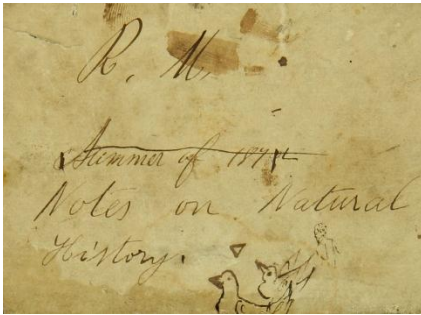 R. M.
Summer of 1874
Notes on Natural
History.